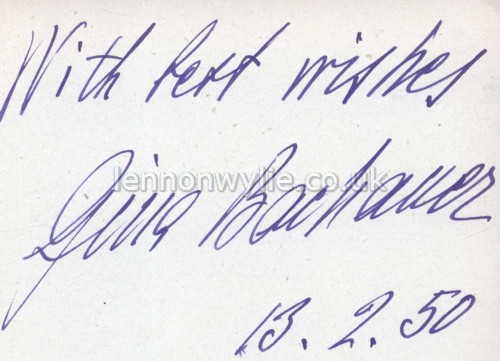 With best wishes
Gina Bachauer
lennonwylie.co.uk
13. 2. 50